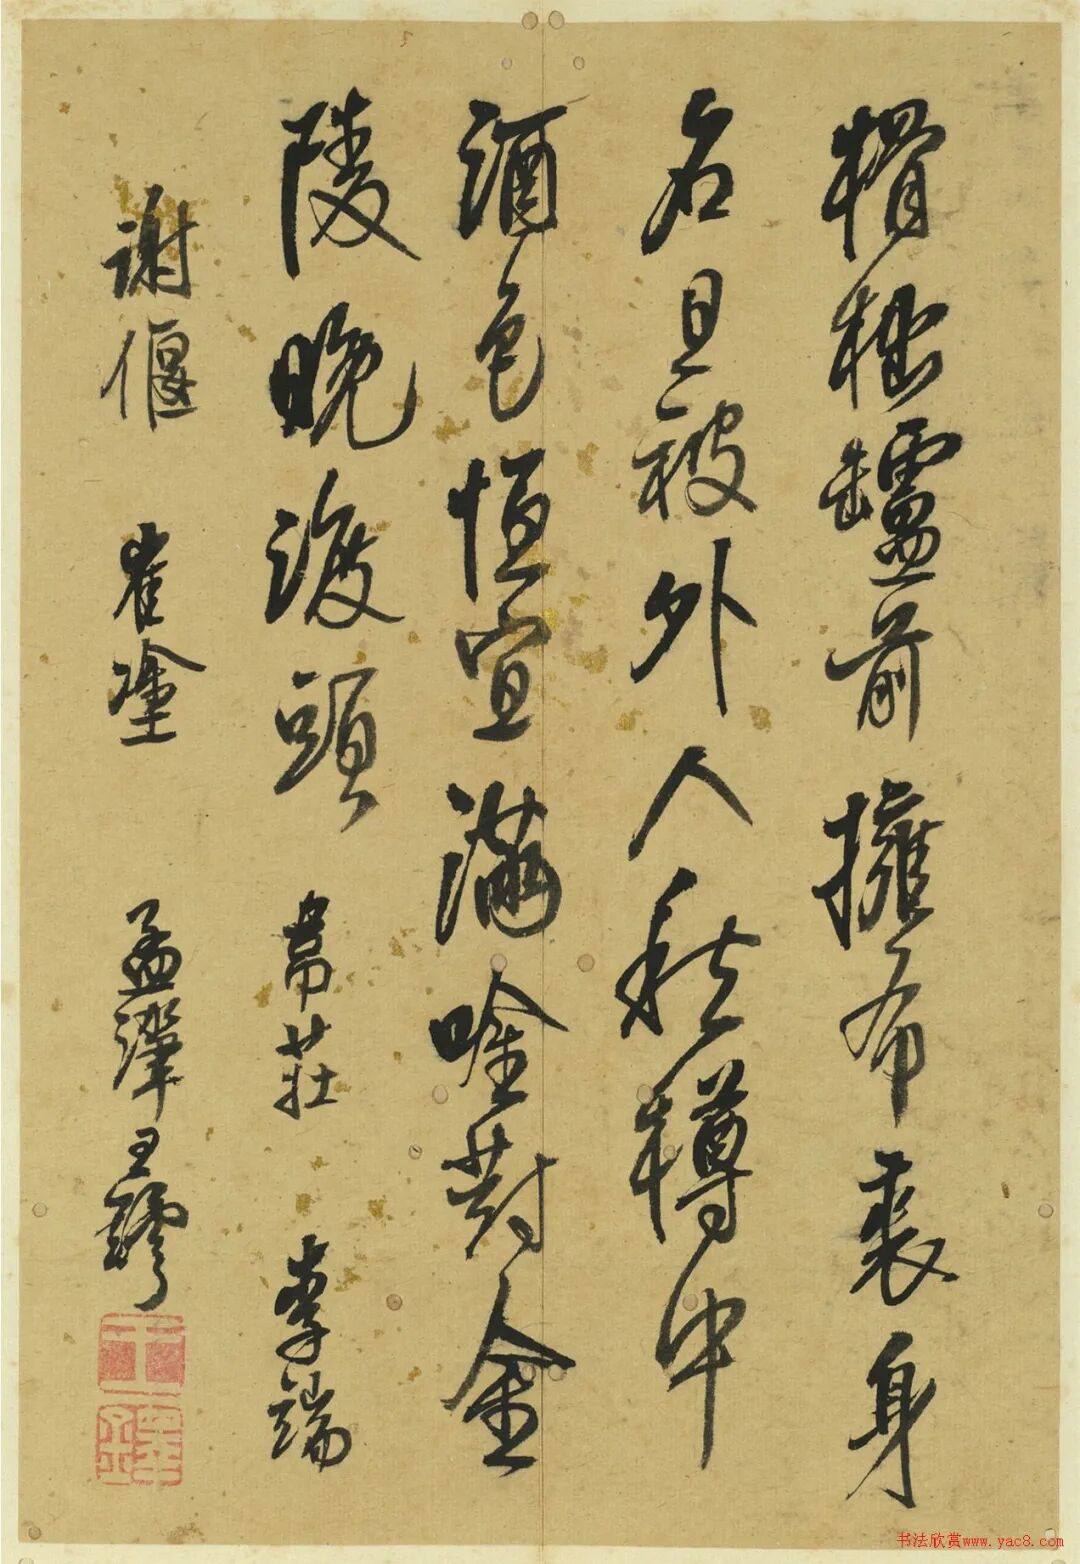 榾柮罏前擁布裘身
名且被外人樽中
酒色恒宜滿唫對金
陵晚渡頭 韋莊 李端
謝偃 崔塗 孟津王鐸
王
鐸
书法欣赏www.yac8.com